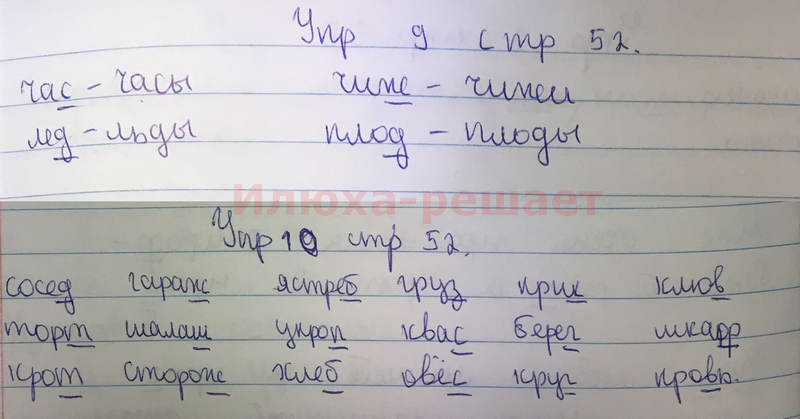 Упр 9 стр 52.
час - часы чиж - чижи
лед - льды плод - плоды
Илюха-решает
Упр 10 стр 52.
сосед гараж ястреб груз крик клюв
торт шалаш укроп квас берег шкаф
крот сторож хлеб овёс круг кровь.